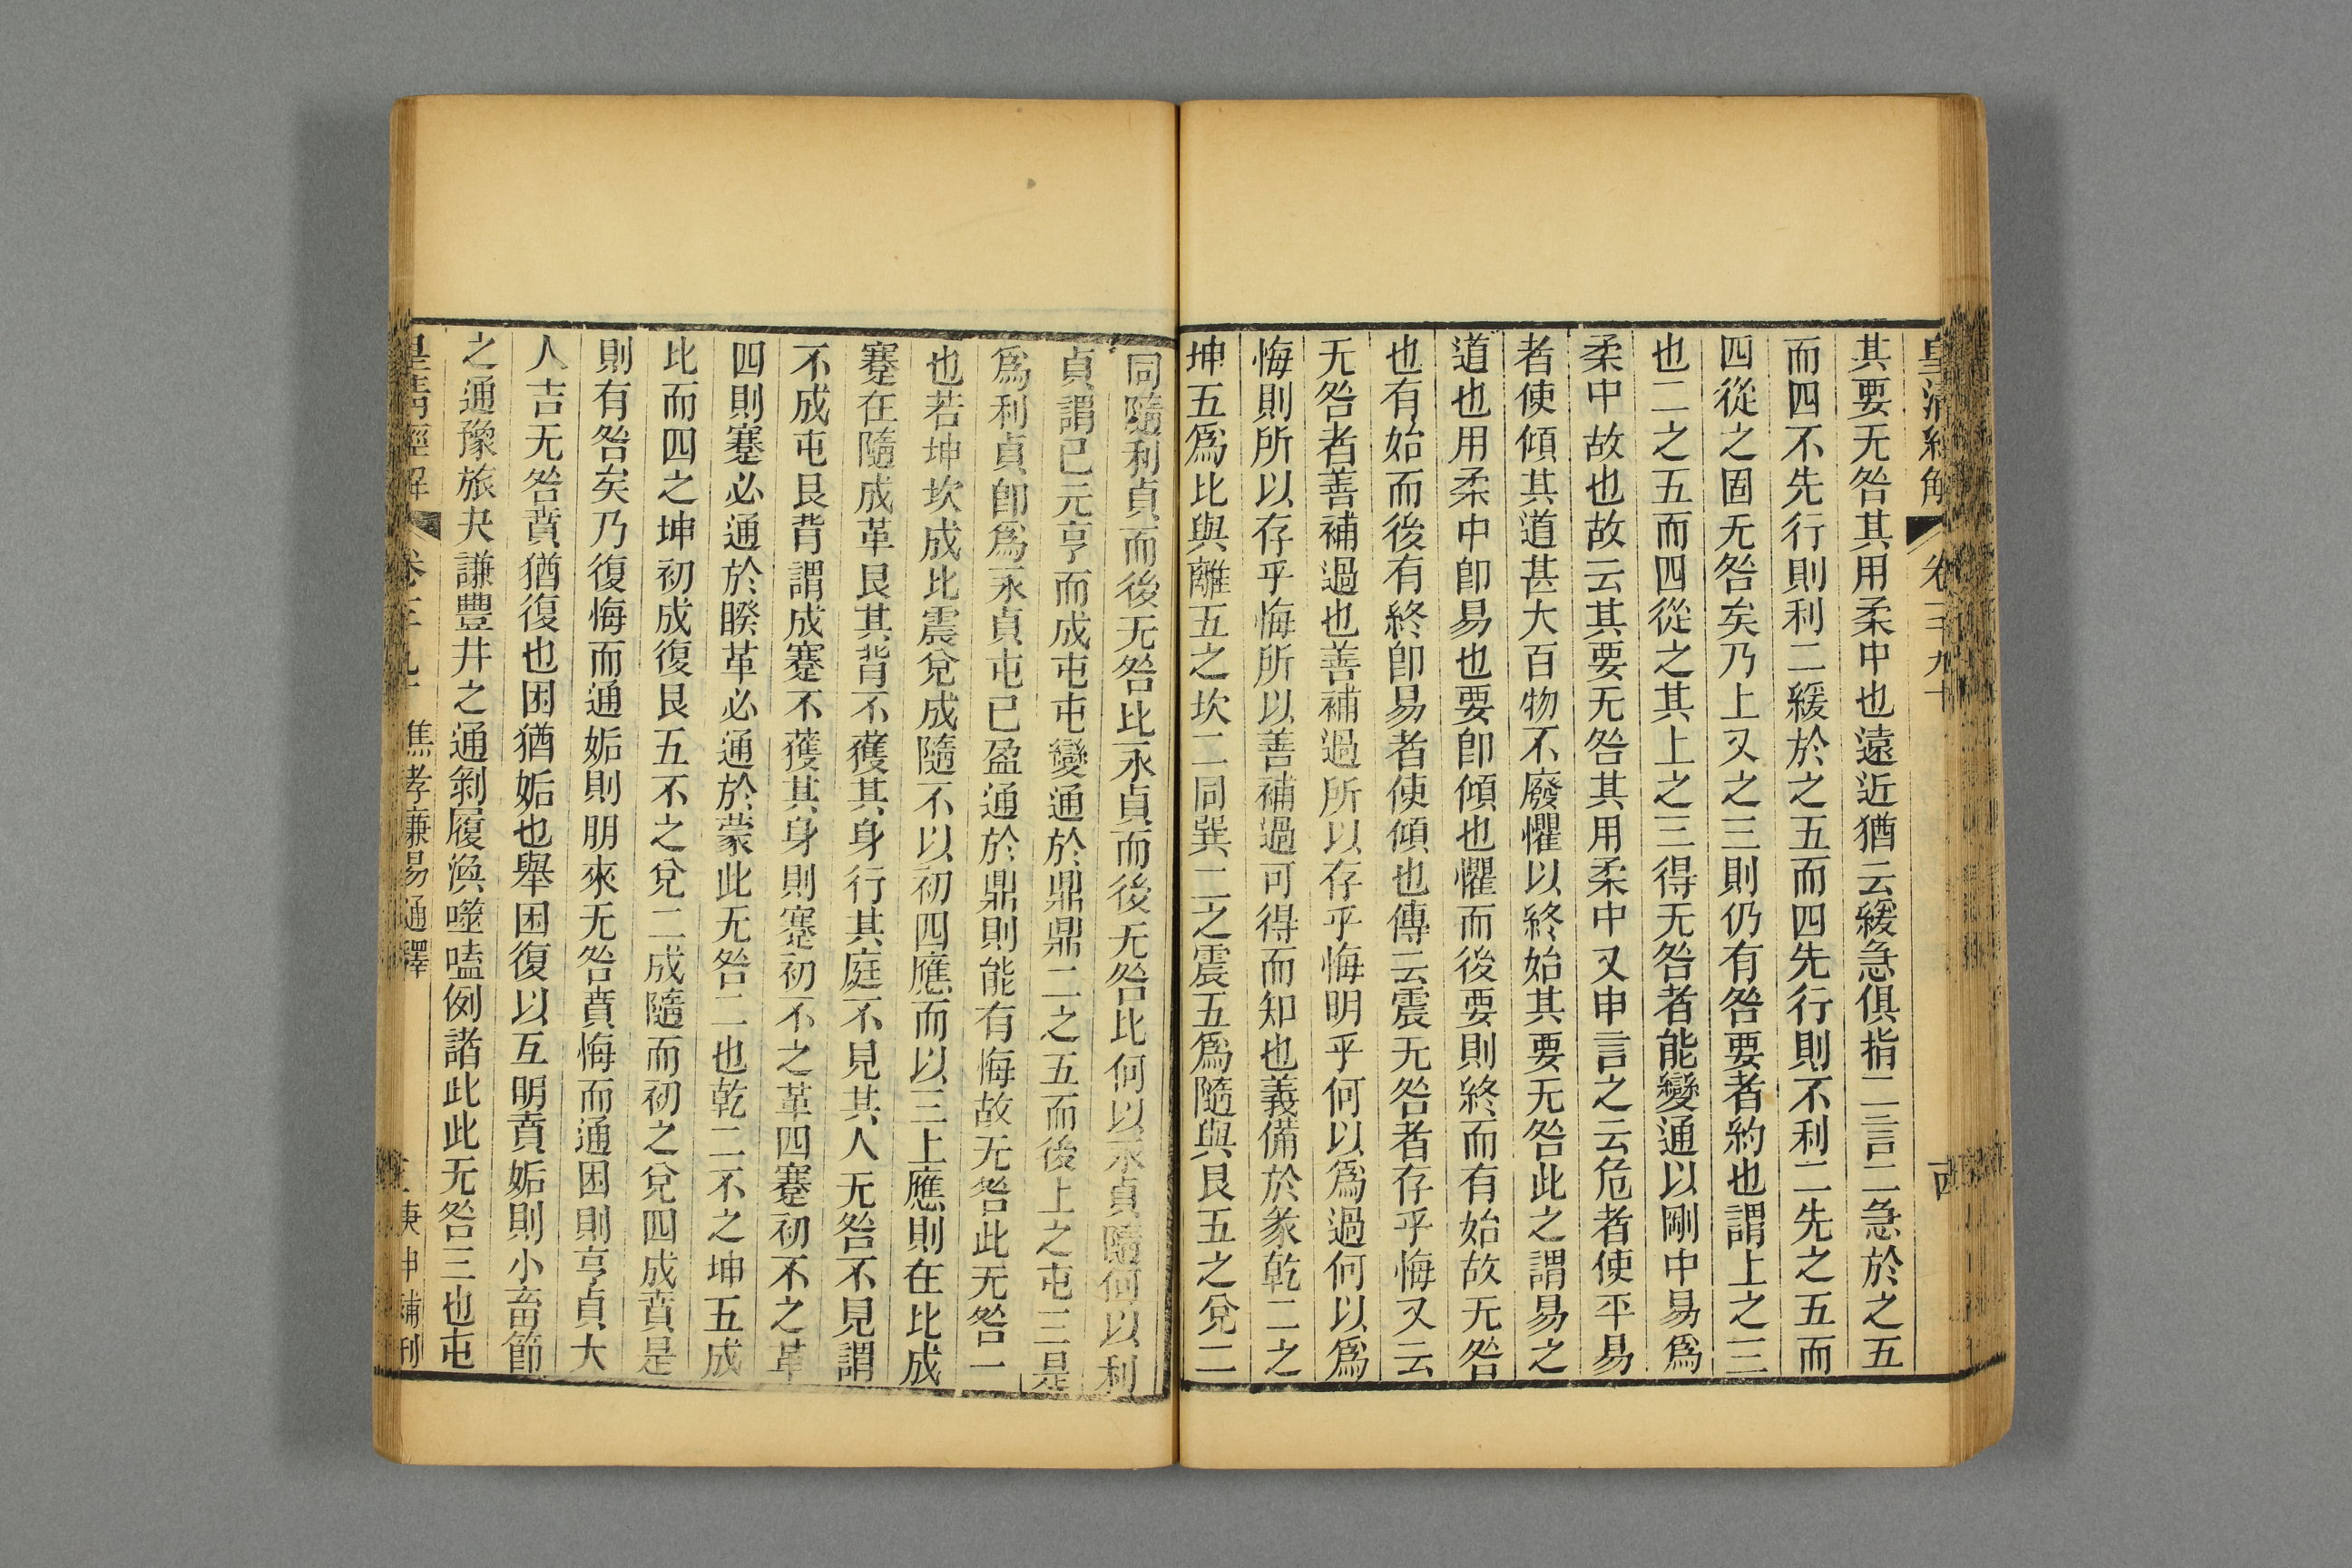 皇清經解 卷千九十
其要无咎其用柔中也遠近猶云緩急俱指二言二急於之五
而四不先行則利二緩於之五而四先行則不利二先之五而
四從之固无咎矣乃上又之三則仍有咎要者約也謂上之三
也二之五而四從之其上之三得无咎者能變通以剛中易爲
柔中故也故云其要无咎其用柔中又申言之云危者使平易
者使傾其道甚大百物不廢懼以終始其要无咎此之謂易之
道也用柔中卽易也要卽傾也懼而後要則終而有始故无咎
也有始而後有終卽易者使傾也傳云震无咎者存乎悔又云
无咎者善補過也善補過所以存乎悔明乎何以爲過何以爲
悔則所以存乎悔所以善補過可得而知也義備於彖乾二之
坤五爲比與離五之坎二同巽二之震五爲隨與艮五之兌二
同隨利貞而後无咎比永貞而後无咎比何以永貞隨何以利
貞謂已元亨而成屯屯變通於鼎鼎二之五而後上之屯三是
爲利貞卽爲永貞屯已盈通於鼎則能有悔故无咎此无咎一
也若坤坎成比震兌成隨不以初四應而以三上應則在比成
蹇在隨成革艮其背不獲其身行其庭不見其人无咎不見謂
不成屯艮背謂成蹇不獲其身則蹇初不之革四蹇初不之革
四則蹇必通於睽革必通於蒙此无咎二也乾二不之坤五成
比而四之坤初成復艮五不之兌二成隨而初之兌四成賁是
則有咎矣乃復悔而通姤則朋來无咎賁悔而通困則亨貞大
人吉无咎賁猶復也困猶姤也舉困復以互明賁姤則小畜節
之通豫旅夬謙豐井之通剝履渙噬嗑例諸此此无咎三也屯
皇清經解 卷千九十 焦孝廉易通釋 庚申補刊